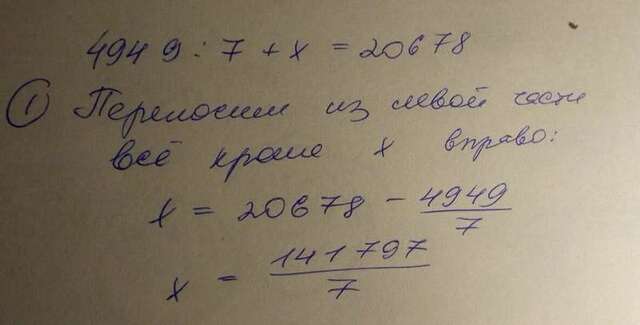 4949 : 7 + x = 20678
① Переносим из левой части
всё кроме x вправо:
x = 20678 - 4949/7
x = 141797/7